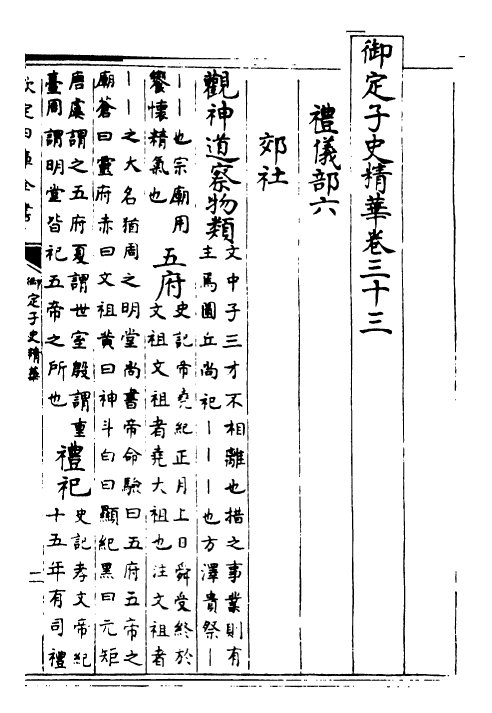 御定子史精華卷三十三
禮儀部六
郊社
觀神道察物類
文中子三才不相離也措之事業則有
主焉圜丘尚祀丨丨丨也方澤貴祭丨
丨丨也宗廟用
饗懷精氣也
五府
史記帝堯紀正月上日舜受終於
文祖文祖者堯大祖也注文祖者
丨丨之大名猶周之明堂尚書帝命驗曰五府五帝之
廟蒼曰靈府赤曰文祖黃曰神斗白曰顯紀黑曰元矩
唐虞謂之五府夏謂世室殷謂重
臺周謂明堂皆祀五帝之所也
禮祀
史記孝文帝紀
十五年有司禮
欽定四庫全書
御定子史精華
二